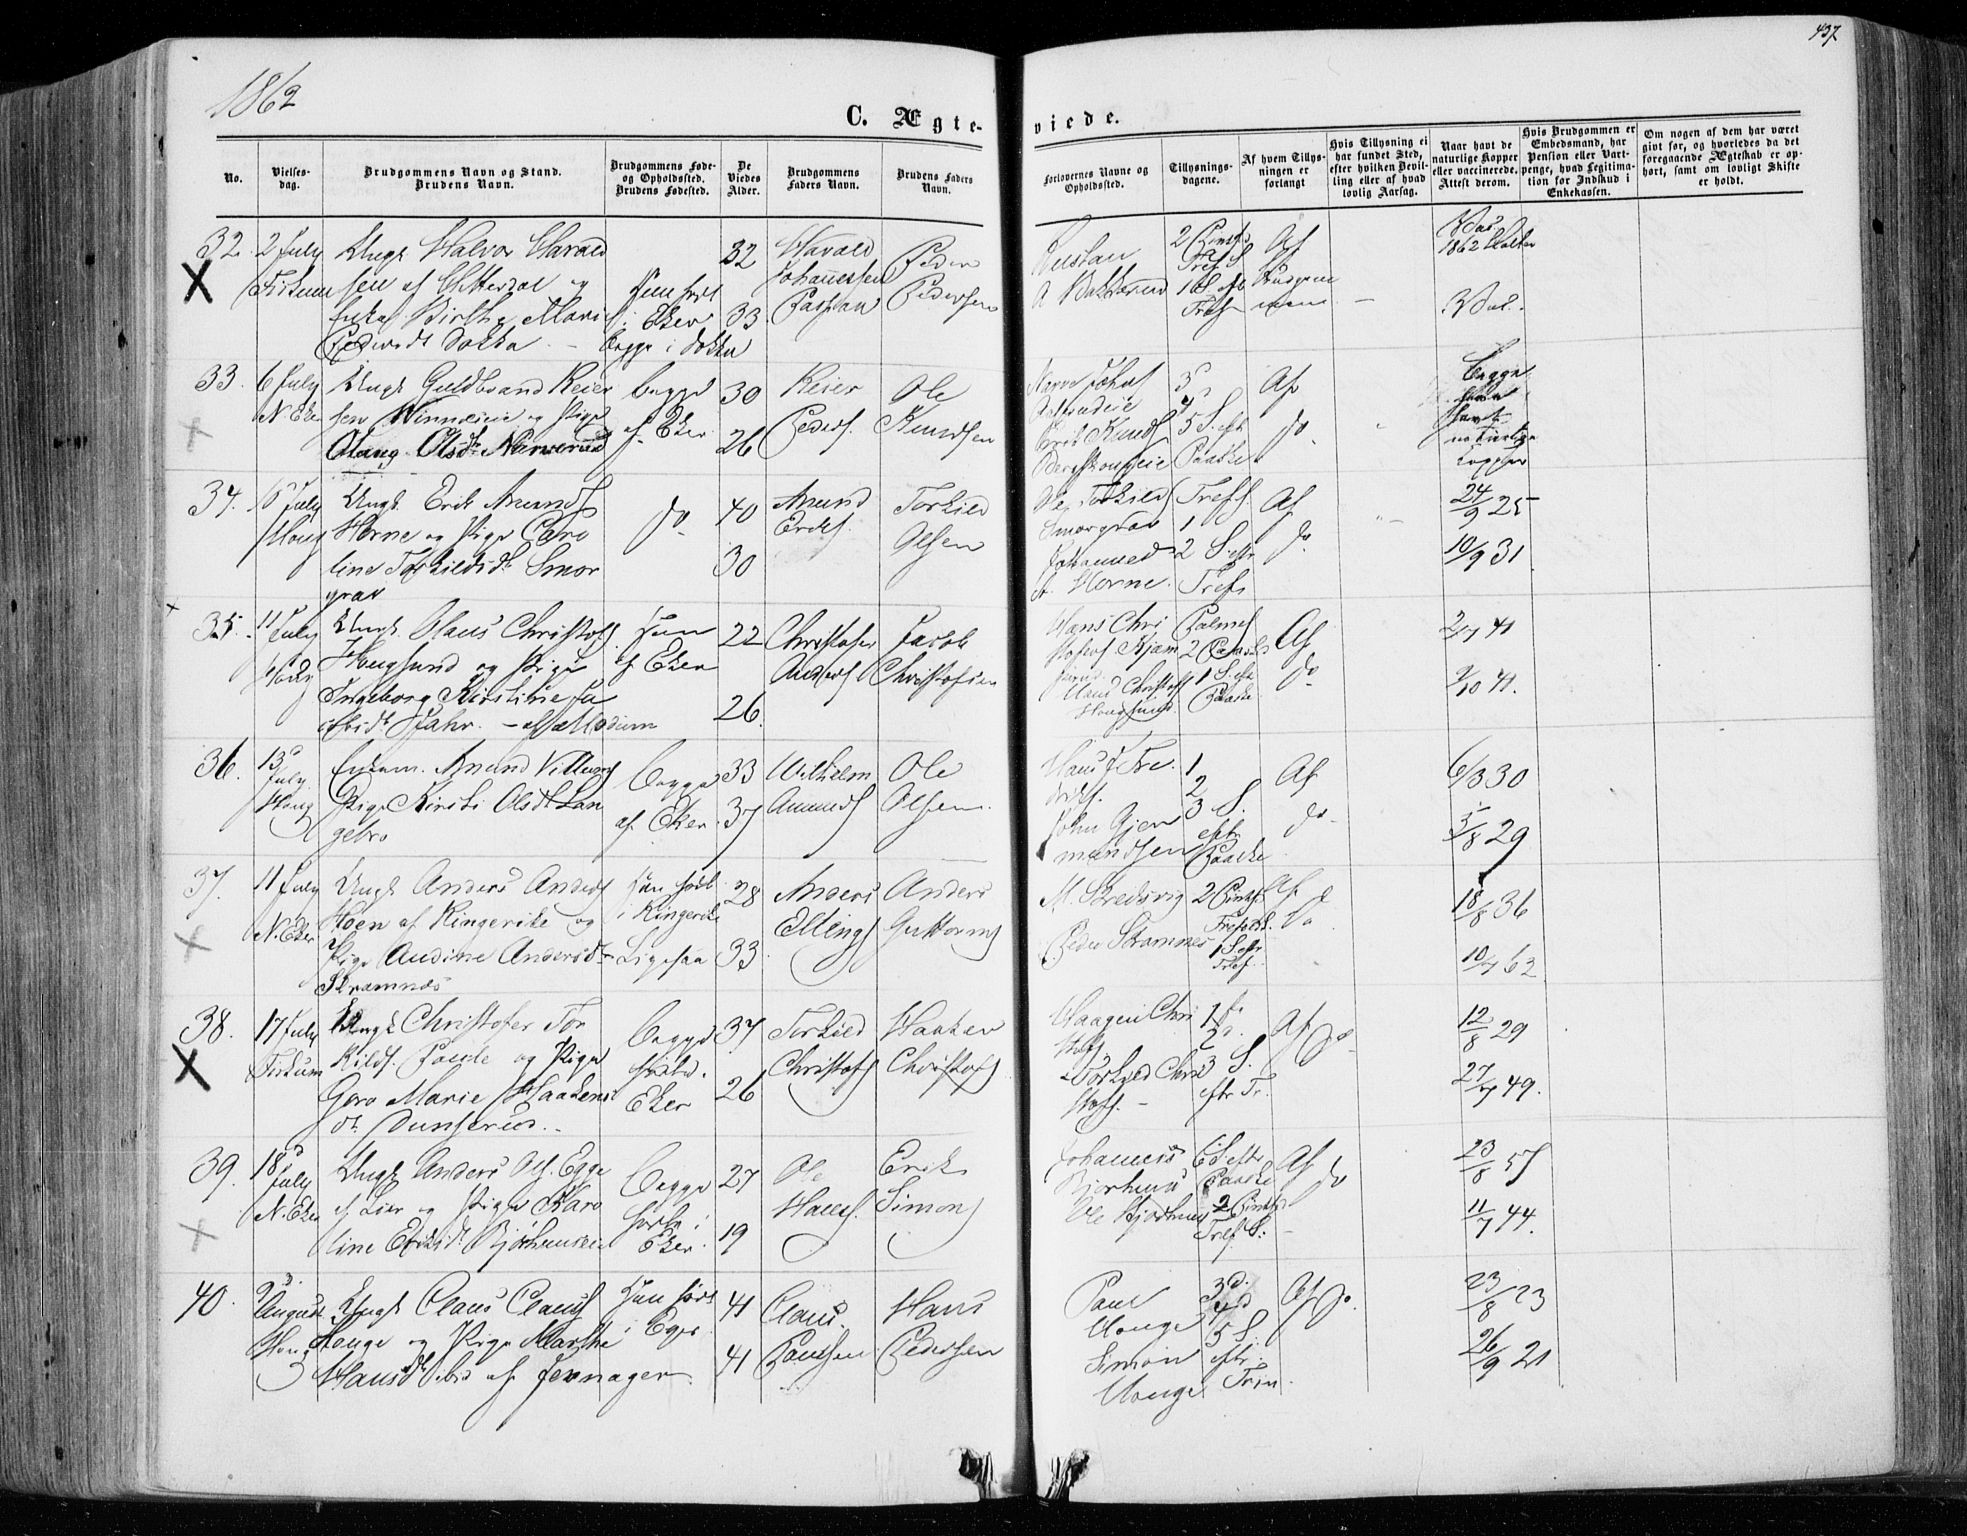 437
1862
C. Ægte-
viede.
No.
Vielses-
dag.
Brudgommens Navn og Stand.
Brudens Navn.
Brudgommens Føde-
og Opholdssted.
Brudens Fødested.
De
Viedes
Alder.
Brudgommens
Faders Navn.
Brudens Faders
Navn.
Forlovernes Navne og
Opholdssted.
Tillysnings-
dagene.
Af hvem Tillys-
ningen er
forlangt
Hvis Tillysning ei
har fundet Sted,
efter hvilken Bevil-
ling eller af hvad
lovlig Aarsag.
Naar havt de
naturlige Kopper
eller vaccinerede.
Attest derom.
Hvis Brudgommen er
Embedsmand, har
Pension eller Vart-
penge, hvad Legitima-
tion for Indskud i
Enkekassen.
Om nogen af dem har været
givt før, og hvorledes da det
foregaaende Ægteskab er op-
hørt, samt om lovligt Skifte
er holdt.
32. 2 July
Fiskum
Ungk Halvor Harald
sen af Hitterdal og
Enke Birthe Marie
Pedersdt Dokka
Hun født
i Eker
begge i Dokka
32
33
Harald
Johannessen
Peder
Pedersen
2 Pinsd
Tref S.
1 S. eft
Tref
Af
Brudgom
men
Vac.
1862
Vac.
33. 6 July
N. Eker
Ungk Guldbrand Reier
sen og Pige
Olsdt
begge
af Eker
30
26
Reier
Peders.
Ole
Knudsen
Erik Knuds
3
4
5 S. eft
Paaske
Af
do
Begge
havt
naturlige
Kopper
34. 6 July
Houg
Ungk Erik Amunds
Horne og Pige Caro
line Torkildsdt Smør
grav
do
40
30
Amund
Eriks.
Torkild
Olsen
Ole Torkilds
Smørgrav
Johannes
Horne.
Tref S.
1
2 S. eftr
Tref.
Af
do
24/9 25
10/9 31
35. 11 July
Houg
Ungk. Olaus Christofs
Hougsund og Pige
Ingeborg Kirstine Ja
cobsdt Fahr. - af Modum
Han
af Eker
22
26.
Christofer
Anders.
Jacob
Christofersen
Hans Chri
stofers
Hans Christofs
Hougsund
Palmes
2 Paaske
1 S. eft
Paaske
Af
do
2/7 41
9/10 41.
36. 13 July
Houg
Enkem. Amund Villums
Pige Kirsti Olsdt Lan
gebro
begge
af Eker
33
37
Wilhelm
Amunds
Ole
Olsen.
Hans Fre
driks.
John Gjer
mundsen
1
2
3 S.
eftr
Paaske
Af
do
6/3 30
5/8 29
37. 11 July
N. Eker
Ungk Anders Anders
Hoen af Ringerike og
Pige Andine Andersdt
Stramnæs
Han født
i Ringerike
Ligesaa
28
33
Anders
Ellings
Anders
Guttorms
M. Skredsvig
Peder Stramnes
2 Pinsed
1 S eftr
Tref.
Af
do
18/8 36
10/7 62
38. 17 July
Fiskum
Ungk Christofer Tor
kilds. og Pige
Gora Marie Haakens
dt Dunserud.
Begge
fødte
Eker
37
26
Torkild
Christofs
Haaken
Christofs
Haagen Chri
stofs
Torkild Chri
stofs.
1
2
3 S.
eftr Tr.
Af
do
12/8 29
27/7 49.
39. 18 July
N. Eker
Ungk Anders Ols. Egge
af Lier og Pige Karo
line Eriksdt Bjørhuuseie
begge
fødte i
Eker.
27
19
Ole
Hans.
Erik
Simons
Johannes
Bjørhuus
Ole Bjørhuus
6 S. eftr
Paaske
2 Pinsed
Tref S.
Af
do
23/8 57
11/7 44.
40.
August
Houg
Ungk Claus Claus
Houge og Pige Marthe
Hansdt ibid af Jevnager.
Han født
i Eger
41
41
Claus
Poulsen
Hans
Pedersen
Paul
Houge
Simon
Houge
3d.
4d
5 S.
eftr.
Trin.
Af
do.
23/8 23
26/9 21